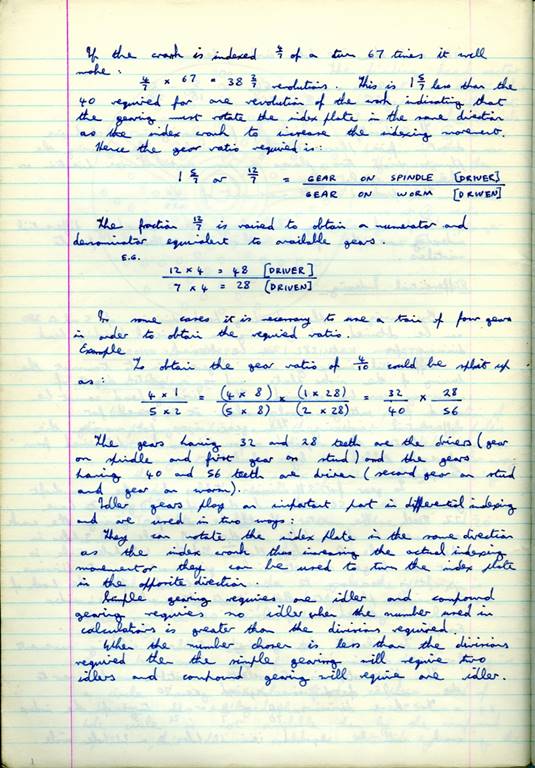 If the crank is indexed 4/7 of a turn 67 times it will
make:
4/7 × 67 = 38 2/7 revolutions. This is 1 5/7 less than the
40 required for one revolution of the work indicating that
the gearing must rotate the index plate in the same direction
as the index crank to increase the indexing movement.
Hence the gear ratio required is:
1 5/7 or 12/7 = GEAR ON SPINDLE [DRIVER]
GEAR ON WORM [DRIVEN]
The fraction 12/7 is raised to obtain a numerator and
denominator equivalent to available gears.
E.G.
12 × 4 = 48 [DRIVER]
7 × 4 = 28 (DRIVEN]
In some cases it is necessary to use a train of four gears
in order to obtain the required ratio.
Example
To obtain the gear ratio of 4/10 could be split up
as:
4 × 1 / 5 × 2 = (4 × 8) / (5 × 8) × (1 × 28) / (2 × 28) = 32 / 40 × 28 / 56
The gears having 32 and 28 teeth are the drivers (gear
on spindle and first gear on stud) and the gears
having 40 and 56 teeth are driven (second gear on stud
and gear on worm).
Idler gears play an important part in differential indexing
and are used in two ways:
They can rotate the index plate in the same direction
as the index crank thus increasing the actual indexing
movement or they can be used to turn the index plate
in the opposite direction.
Simple gearing requires one idler and compound
gearing requires no idler when the number used in
calculations is greater than the divisions required.
When the number chosen is less than the divisions
required then the simple gearing will require two
idlers and compound gearing will require one idler.